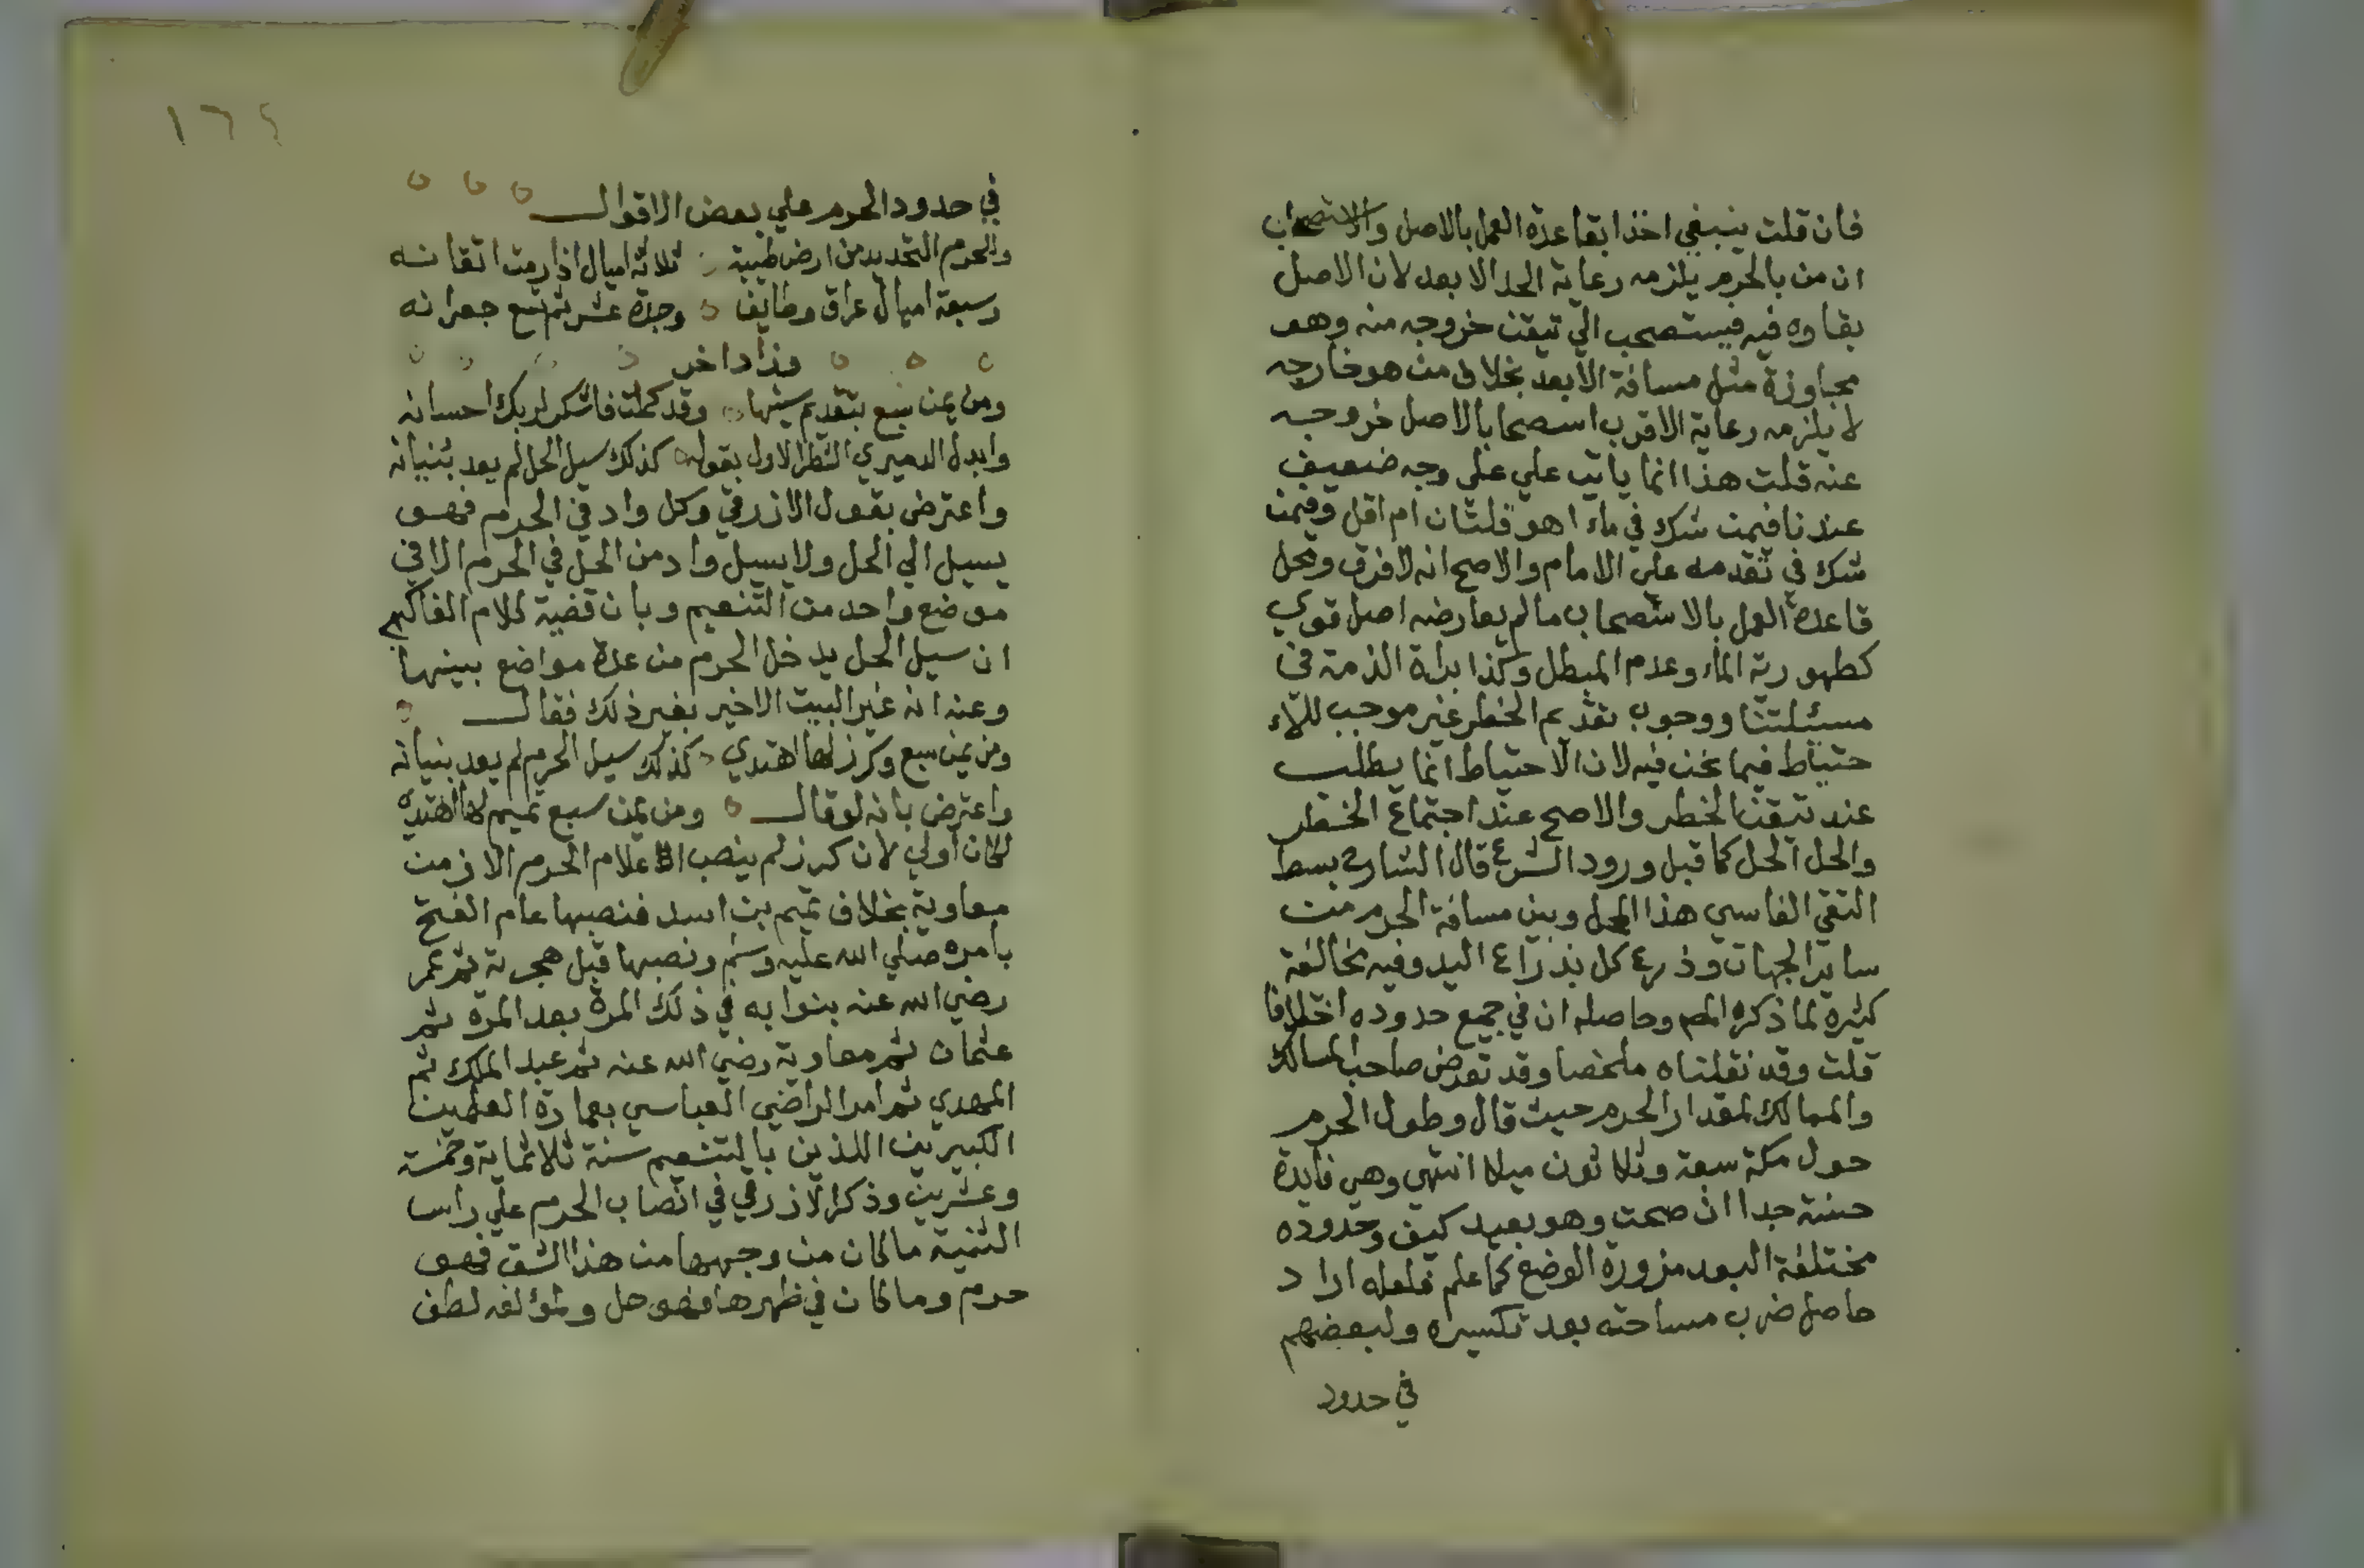 فان قلت ينبغي اخذا بقاعدة العمل بالاصل والاستصحاب
ان من بالحرم يلزمه رعاية الحد الابعد لان الاصل
بقاوه فيه فيستصحب الي تيقن خروجه منه وهو
مجاوزة مثل مسافة الابعد بخلاف من هو خارجه
لا يلزمه رعاية الاقرب استصحابا لاصل خروجه
عنه قلت هذا انما ياتي علي على وجه ضعيف
عندنا فيمن شك في ماء اهو قلتان ام اقل وفيمن
شك في تقدمه علي الامام والاصح انه لا فرق ومحل
قاعدة العمل بالاستصحاب ما لم يعارضه اصل قوي
كطهورية الماء وعدم المبطل وكذا براة الذمة في
مسئلتنا ووجوب تقديم الخطر غير موجب للا
حتياط فيما نحن فيه لان الاحتياط انما يطلب
عند تيقن الخطر والاصح عند اجتماع الخطر
والحل الحل كما قبل ورود الشرع قال الشارح بسط
التقي الفاسي هذا المحل وبين مسافة الحرم من
ساير الجهات وذرع كل بذراع اليد وفيه مخالفة
كثيرة لما ذكره المص وحاصله ان في جميع حدوده اختلافا
قلت وقد نقلناه ملخصا وقد تعرض صاحب المسالك
والممالك لمقدار الحرم حيث قال وطول الحرم
حول مكة سبعة وثلاثون ميلا انتهي وهي فايدة
حسنة جدا ان صحت وهو بعيد كيف وحدوده
مختلفة البعد مزورة الوضع كما علم فلعله اراد
حاصل ضرب مساحته بعد تكسيره ولبعضهم
في حدود
١٦٤
في حدود الحرم علي بعض الاقوال
وللحرم التحديد من ارض طيبة ثلاثة اميال اذا رمت اتقانه
وسبعة اميال عراق وطايف وجدة عشر ثم تسع جعرانه
وزاد اخر
ومن يمن سبع بتقديم سينها وقد كملت فاشكر لربك احسانه
وابدل الدميري الشطر الاول بقوله كذلك سيل الحل لم يعد بنيانه
واعترض بقول الازرقي وكل واد في الحرم فهو
يسيل الي الحل ولا يسيل واد من الحل في الحرم الا في
موضع واحد من التنعيم وبان قضية كلام الفاكهي
ان سيل الحل يدخل الحرم من عدة مواضع بينها
وعنه انه غير البيت الاخير بغير ذلك فقال
ومن يمن سبع وكرز لها اهتدي كذلك سيل الحرم لم يعد بنيانه
واعترض بانه لو قال ومن يمن سبع تميم لها اهتدي
لكان اولي لان كرز لم ينصب اعلام الحرم الا زمن
معاوية بخلاف تميم بن اسد فنصبها عام الفتح
بامره صلي الله عليه وسلم ونصبها قبل هجرته ثم عمر
رضي الله عنه بنوابه في ذلك المرة بعد المرة ثم
عثمان ثم معاوية رضي الله عنه ثم عبد الملك ثم
المهدي ثم امر الراضي العباسي بعمارة العلمين
الكبيرين اللذين بالتنعيم سنة ثلاثماية وخمسة
وعشرين وذكر الازرقي في انصاب الحرم علي راس
الثنية ما كان من وجهها من هذا الشق فهو
حرم وما كان في ظهرها فهو حل ولمؤلفه لطف